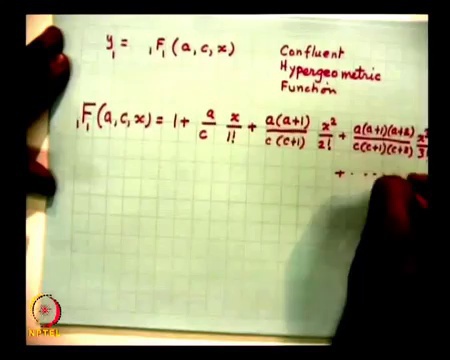 y₁ = ₁F₁(a,c,x)
Confluent
Hypergeometric
Function
₁F₁(a,c,x) = 1 + a/c x/1! + a(a+1)/c(c+1) x²/2! + a(a+1)(a+2)/c(c+1)(c+2) x³/3!
+ ....
NPTEL